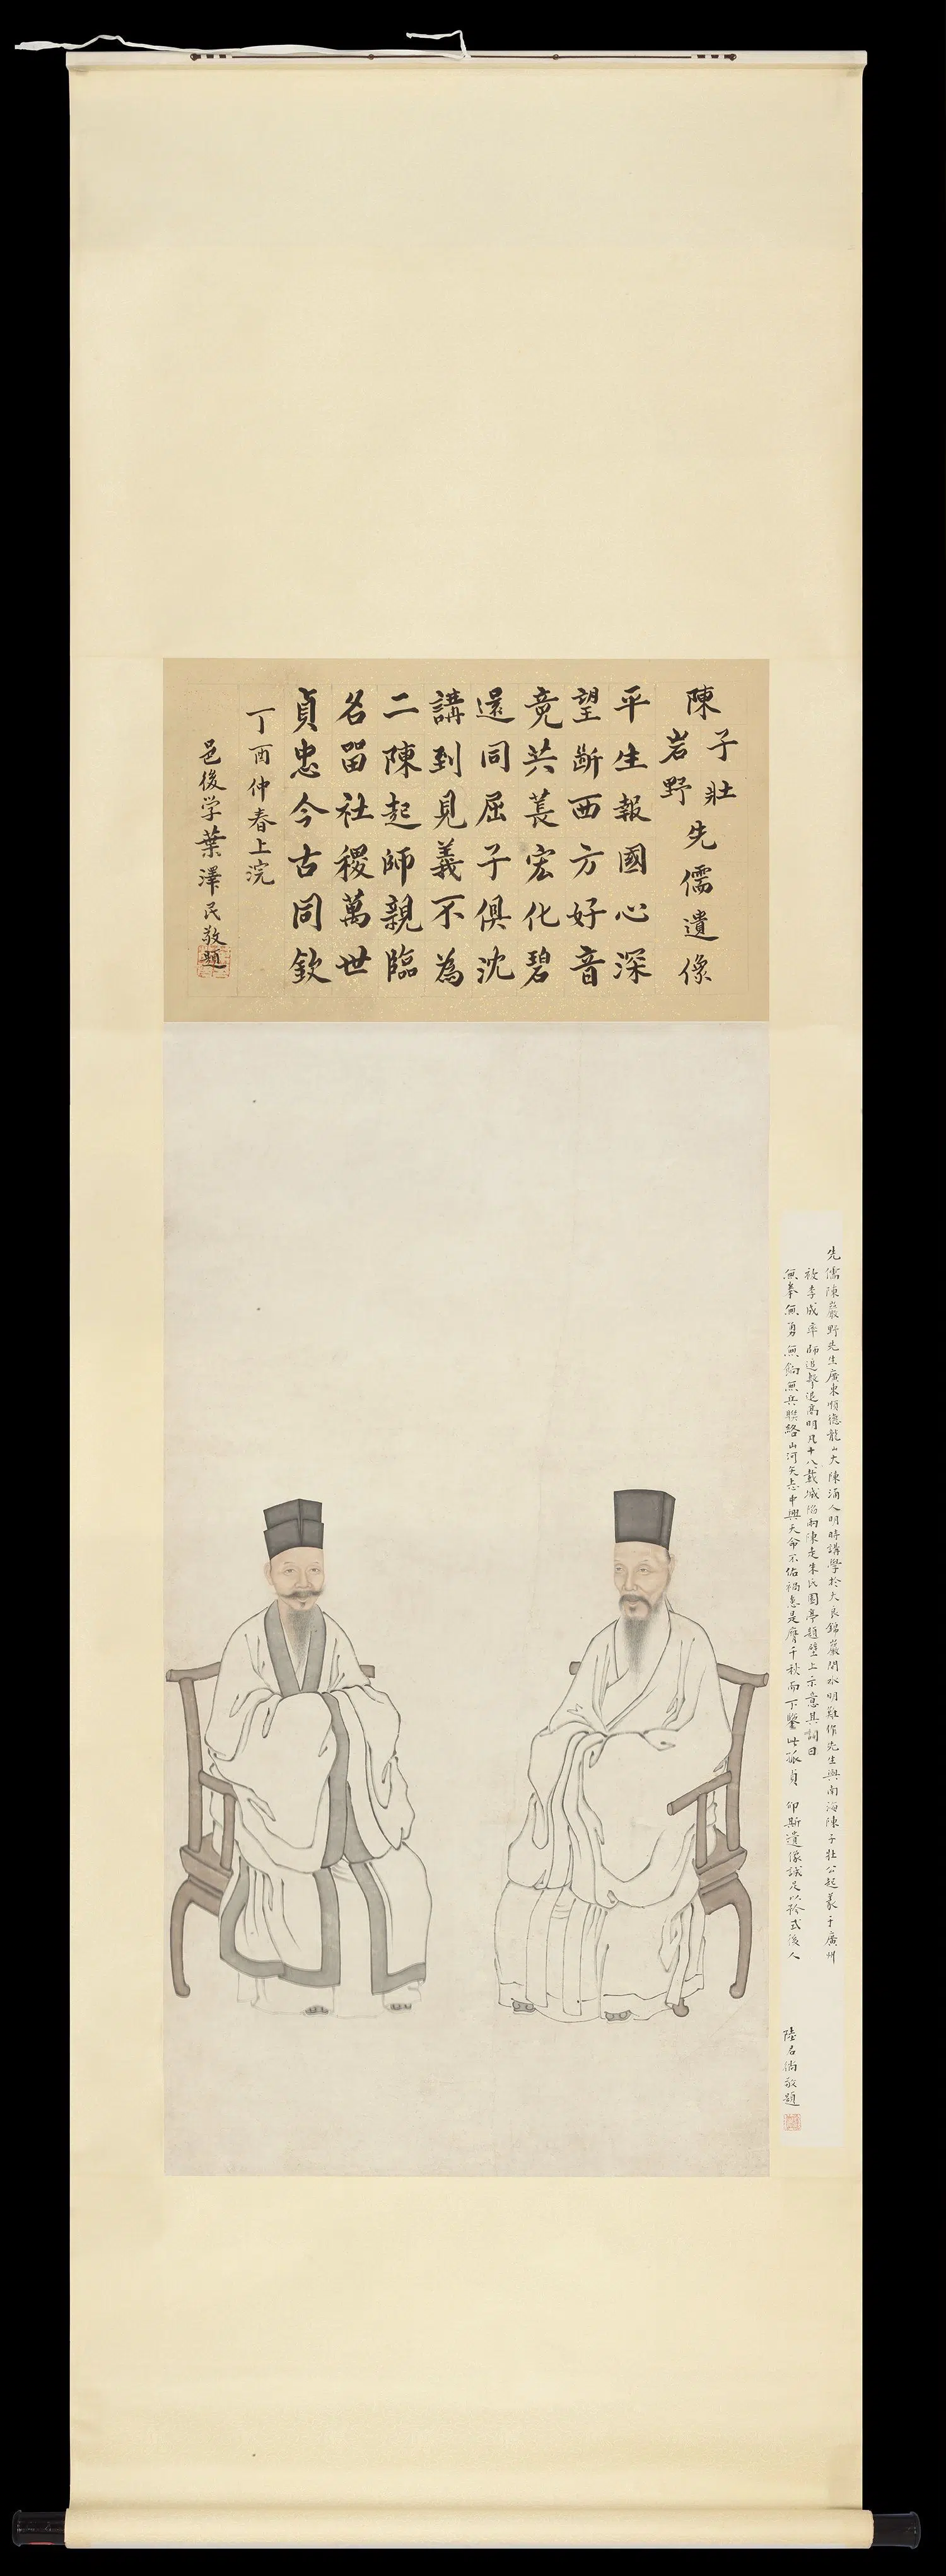 陳子壯岩野先儒遺像
平生報國心深
望斷西方好音
竟共萇宏化碧
還同屈子俱沈
講到見義不為
二陳起師親臨
名留社稷萬世
貞忠今古同欽
丁酉仲春上浣
邑後学葉澤民敬題
先儒陳巖野先生廣東順德龍山大陳涌人明時講學於大良錦巖閣水明難作先生與南海陳子壯公起義于廣州
被李成率師追擊退高明凡十八戰城陷兩陳走朱氏園亭題壁上示意其詞曰
無拳無勇無餉無兵聯絡山河矢志中興天命不佑禍患是膺千秋而下鑒此孤貞 仰斯遺像誠足以矜式後人
陸君 敬題